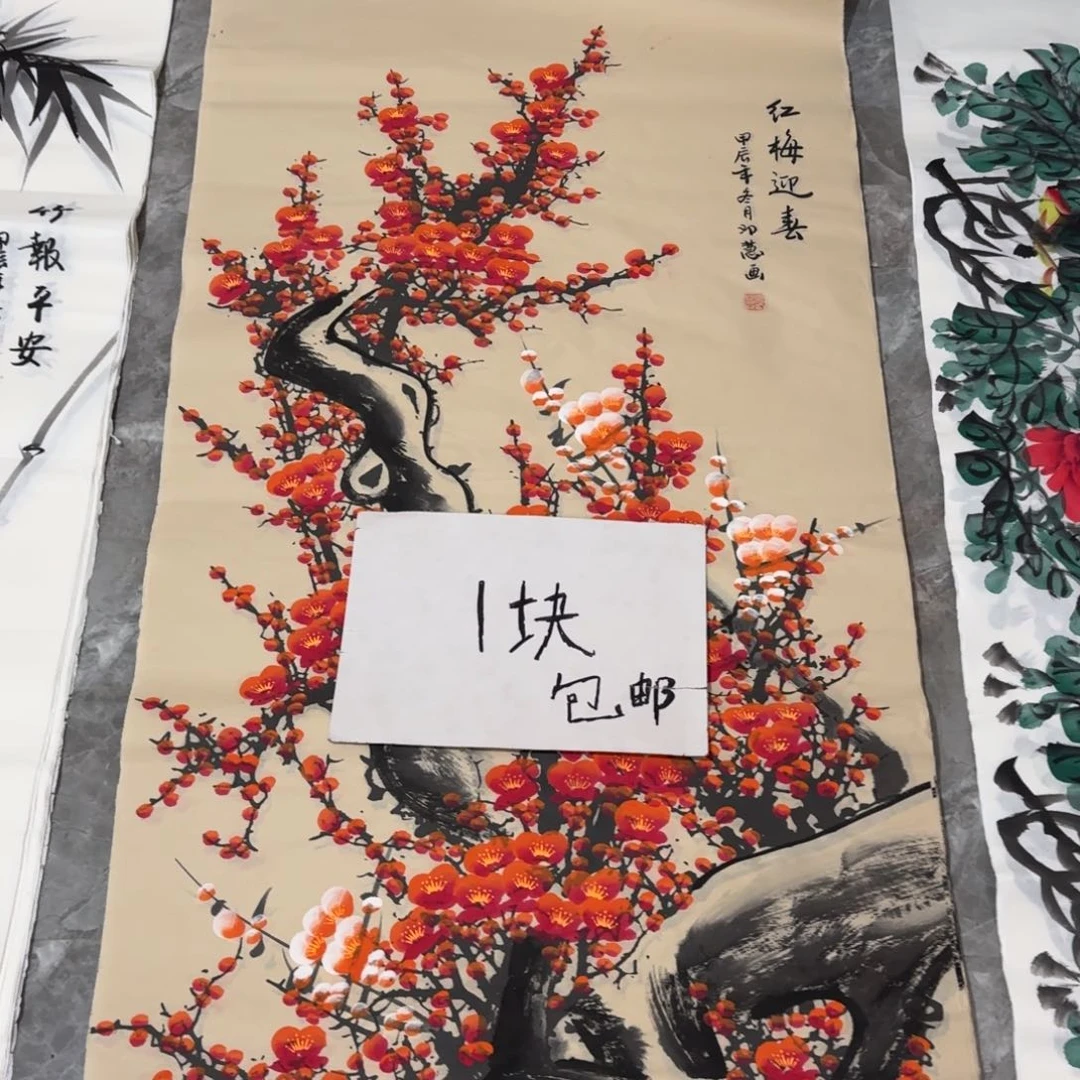 红梅迎春
甲辰年冬月
画
報平安
1块
包邮